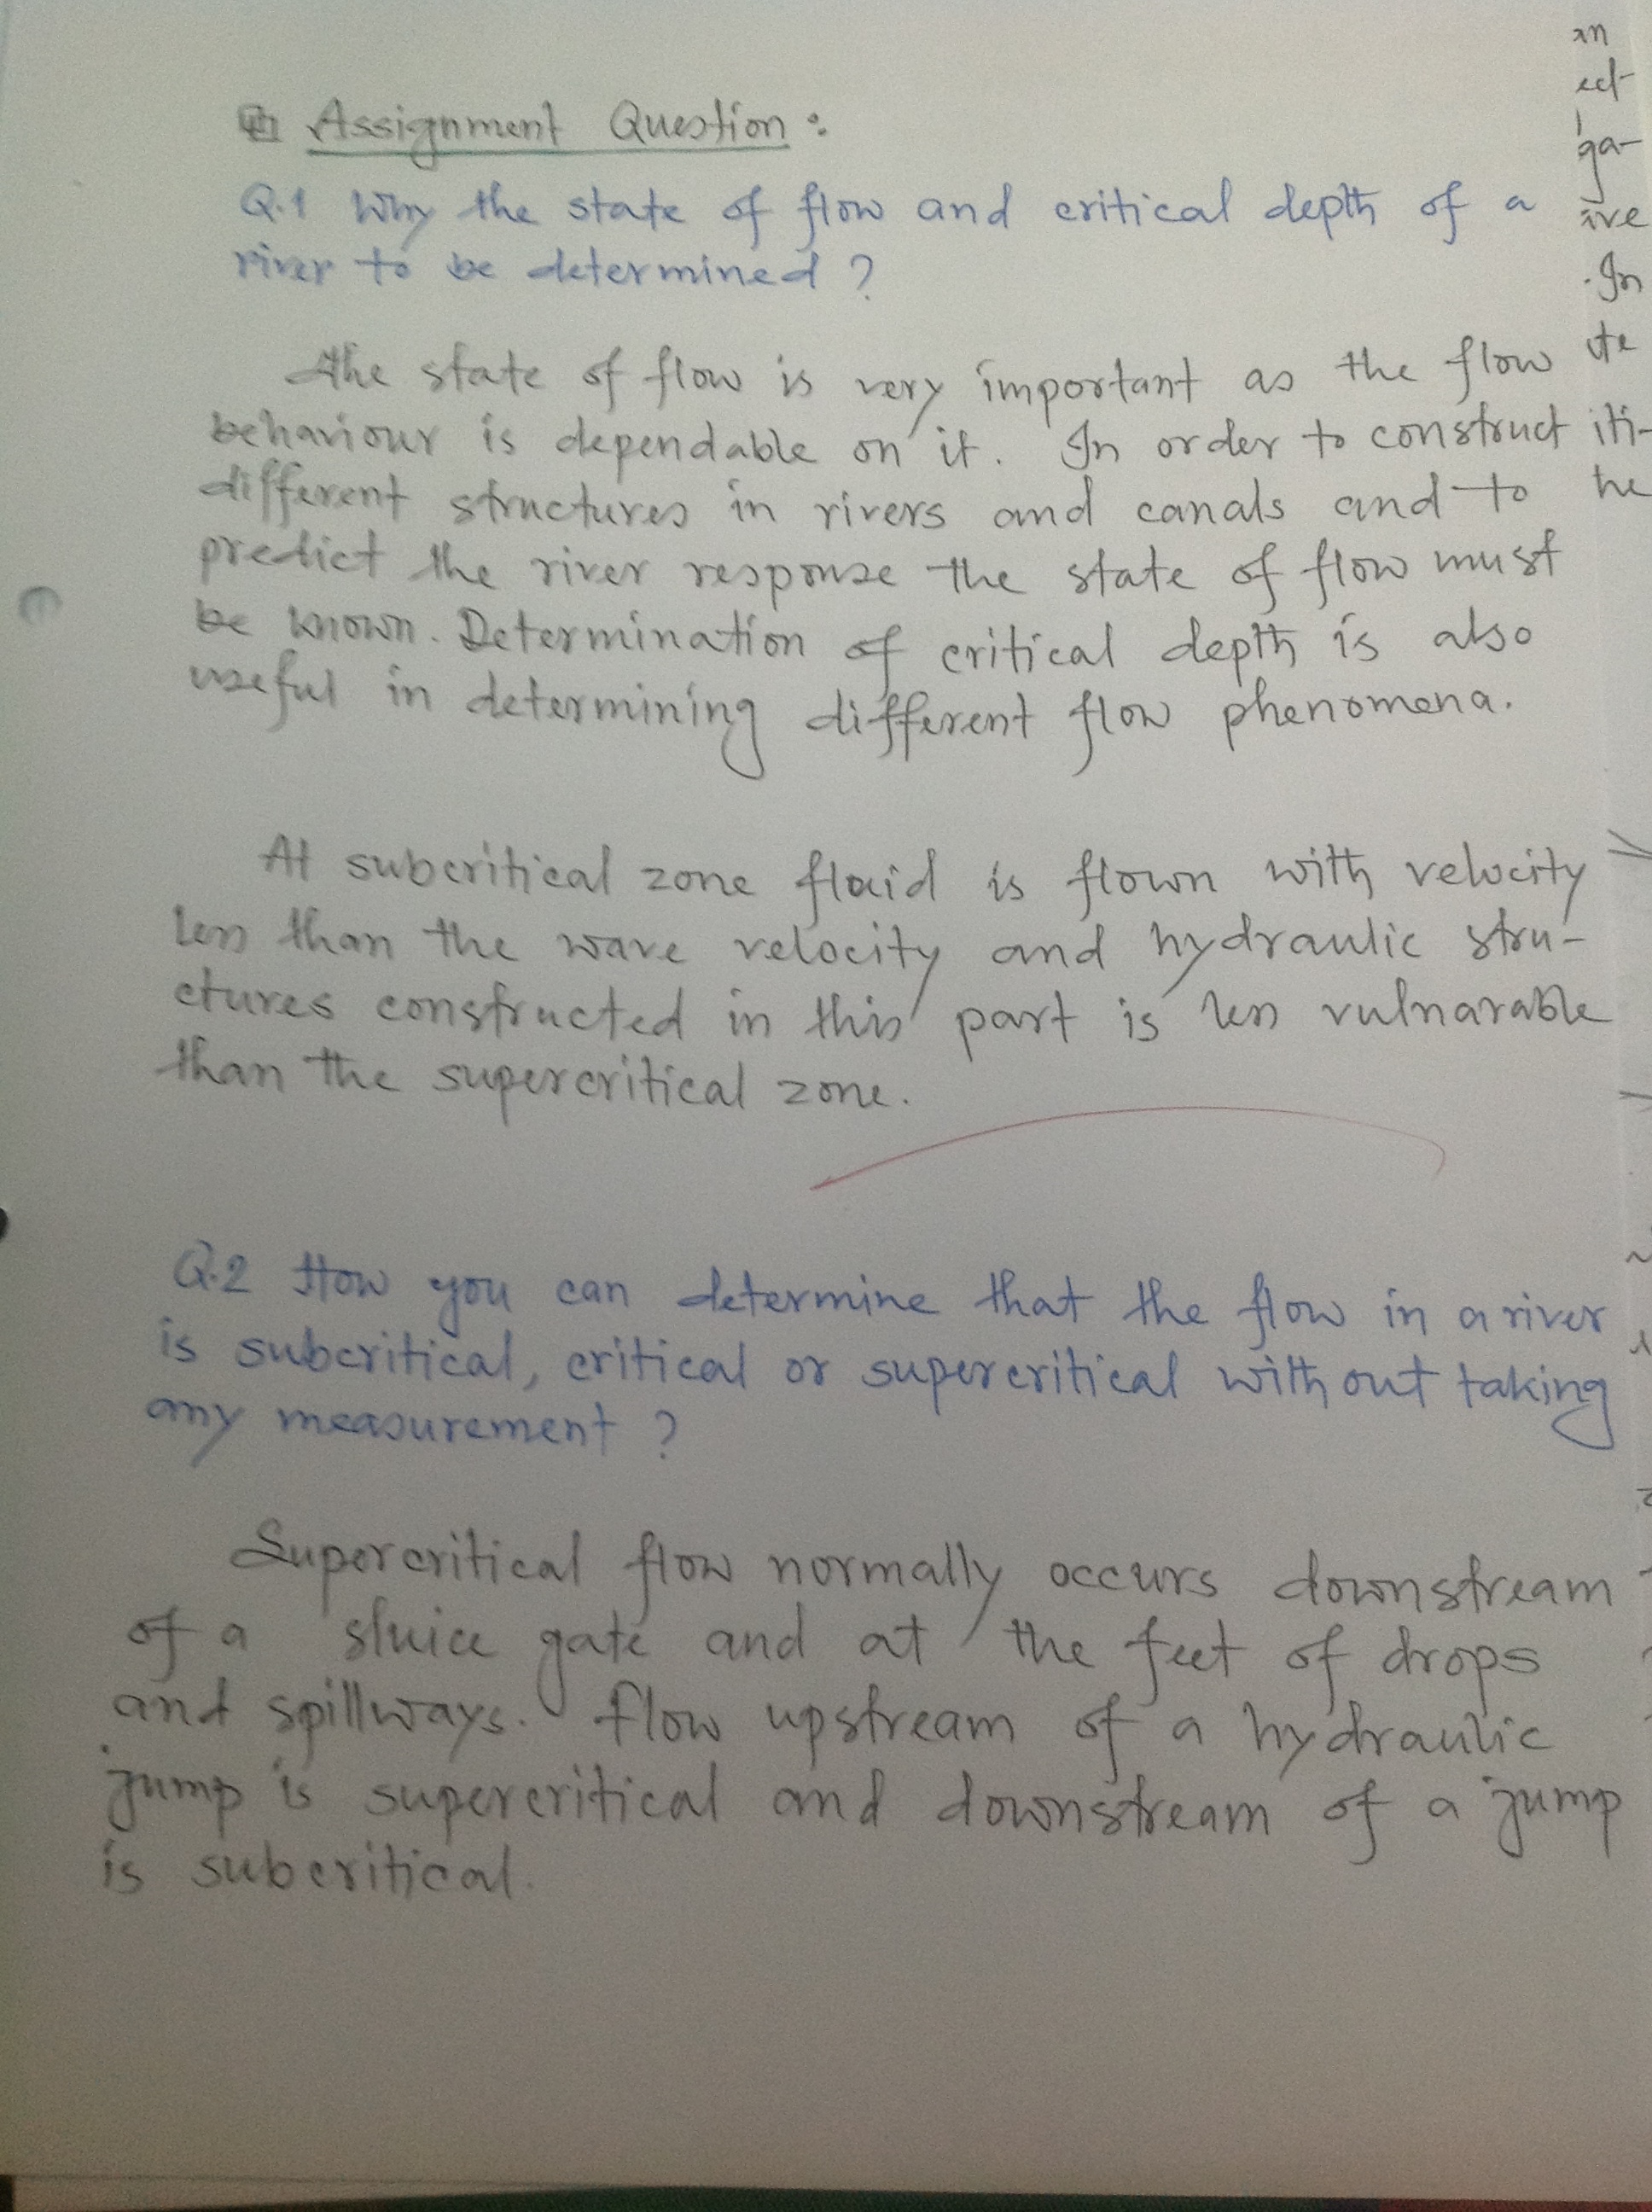 Assignment Question :
Q.1 Why the state of flow and critical depth of a
river to be determined ?
The state of flow is very important as the flow
behaviour is dependable on it. In order to construct
different structures in rivers and canals and to
predict the river response the state of flow must
be known. Determination of critical depth is also
useful in determining different flow phenomena.
At subcritical zone fluid is flown with velocity
less than the wave velocity and hydraulic stru-
ctures constructed in this part is less vulnarable
than the supercritical zone.
Q.2 How you can determine that the flow in a river
is subcritical, critical or supercritical without taking
any measurement ?
Supercritical flow normally occurs downstream
of a sluice gate and at the feet of drops
and spillways. Flow upstream of a hydraulic
jump is supercritical and downstream of a jump
is subcritical.